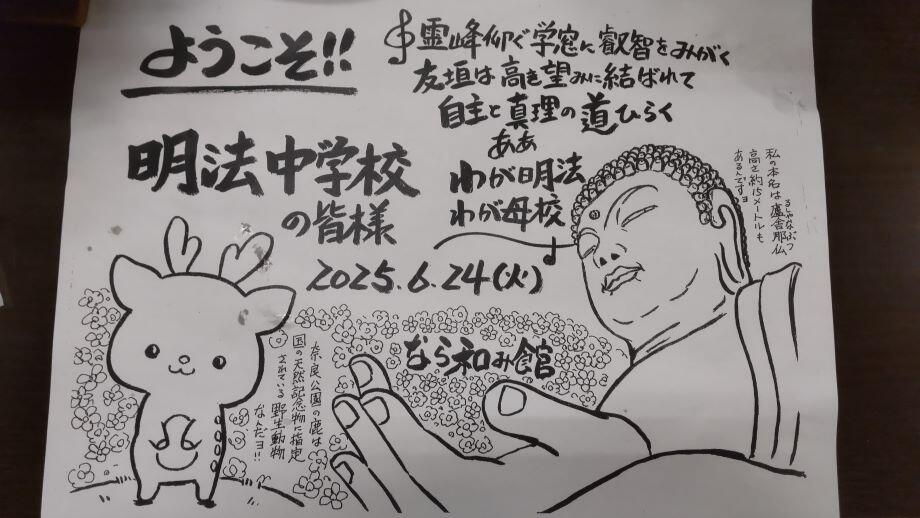 ようこそ!!
明法中学校
の皆様
2025.6.24(火)
霊峰仰ぐ学窓に叡智をみがく
友垣は高き望みに結ばれて
自主と真理の道ひらく
ああ
わが明法
わが母校
私の本名は盧舎那仏
るしゃなぶつ
高さ約15メートルも
あるんですヨ
なら和み館
奈良公園の鹿は
国の天然記念物に指定
されている野生動物
なんだヨ!!